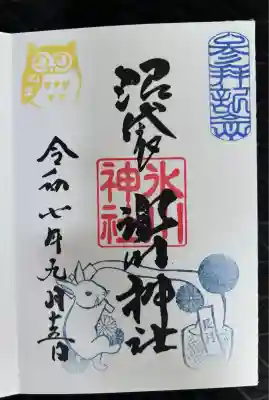 参拝記念
沼袋
氷川神社
氷川神社
令和七年九月十五日